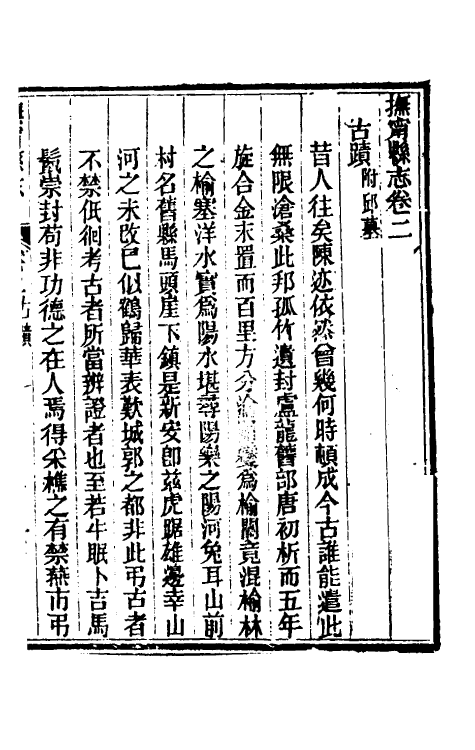 撫甯縣志卷二
古蹟附邱墓
昔人往矣陳迹依然曾幾何時頓成今古誰能遣此
無限滄桑此邦孤竹遺封盧龍舊部唐初析而五年
旋合金末置而百里方分渝關變為榆關竟混榆林
之榆塞洋水實為陽水堪尋陽樂之陽河兔耳山前
村名舊縣馬頭崖下鎮是新安卽茲虎踞雄邊幸山
河之未改已似鶴歸華表歎城郭之都非此弔古者
不禁低徊考古者所當辨證者也至若牛眠卜吉馬
鬣崇封苟非功德之在人焉得采樵之有禁燕市弔